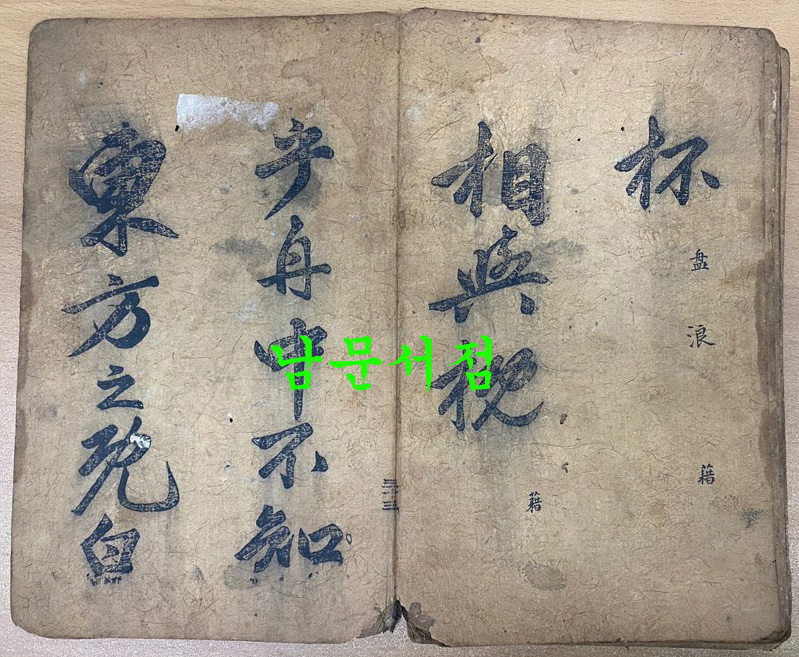 杯盤浪藉
相與枕藉
乎舟中不知
東方之既白
三三
남문서점